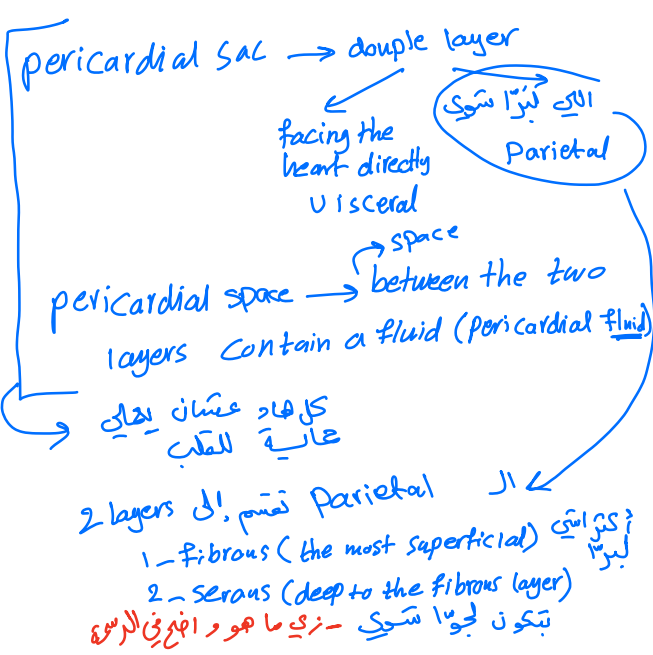 pericardial sac → douple layer
اللي لبرّا شوي
Parietal
facing the
heart directly
visceral
space
pericardial space → between the two
layers contain a fluid (pericardial fluid)
كل هاد عشان يعطي
حماية للقلب
ال parietal تقسم إلى 2 layers
1 - fibrous (the most superficial) أكثر اشي لبرّا
2 - serous (deep to the fibrous layer)
بتكون لجوّا شوي - زي ما هو واضح في الرسمة